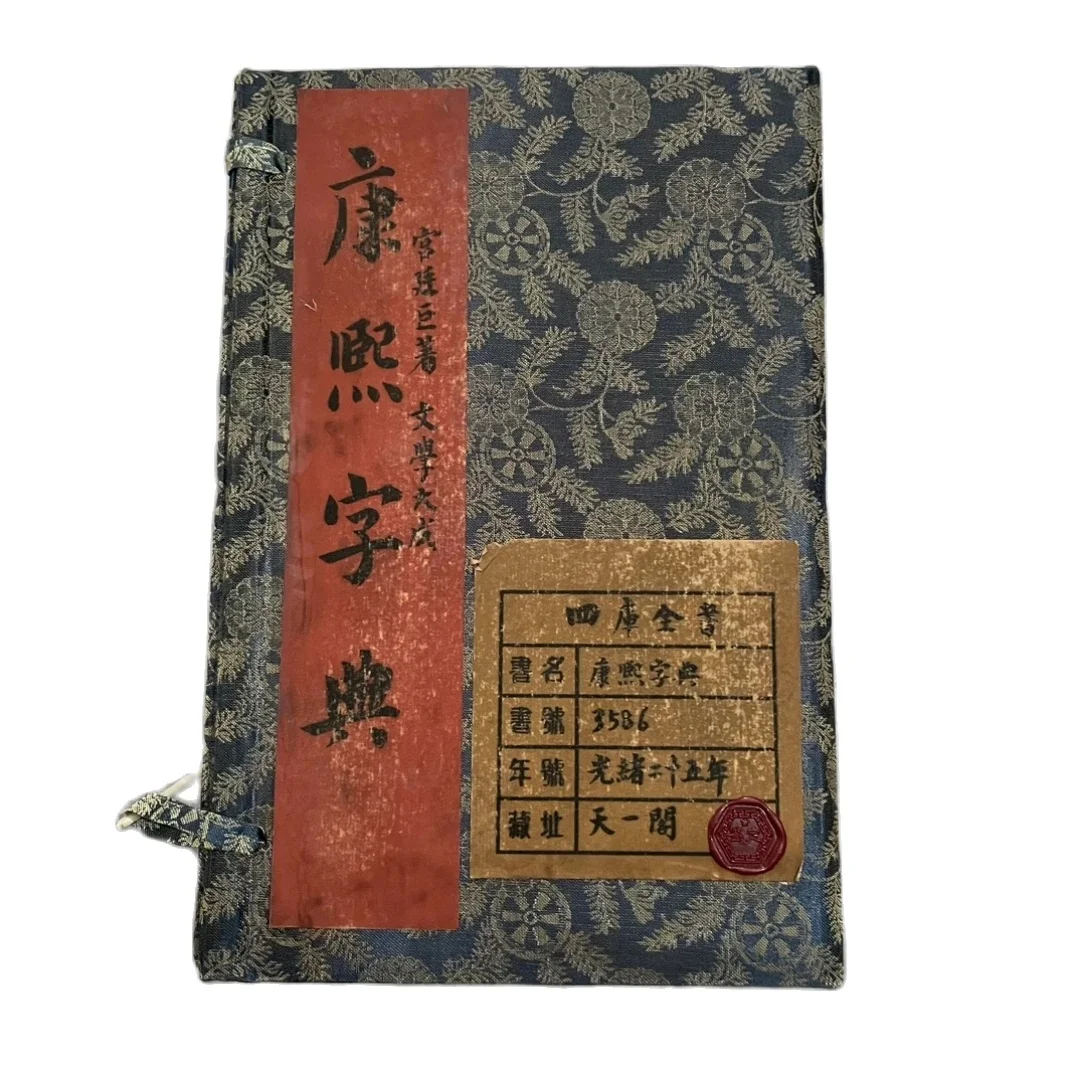 康熙字典
宮孫巨著 文學大成
四庫全書
書名 康熙字典
書號 3586
年號 光緒二十五年
藏址 天一閣